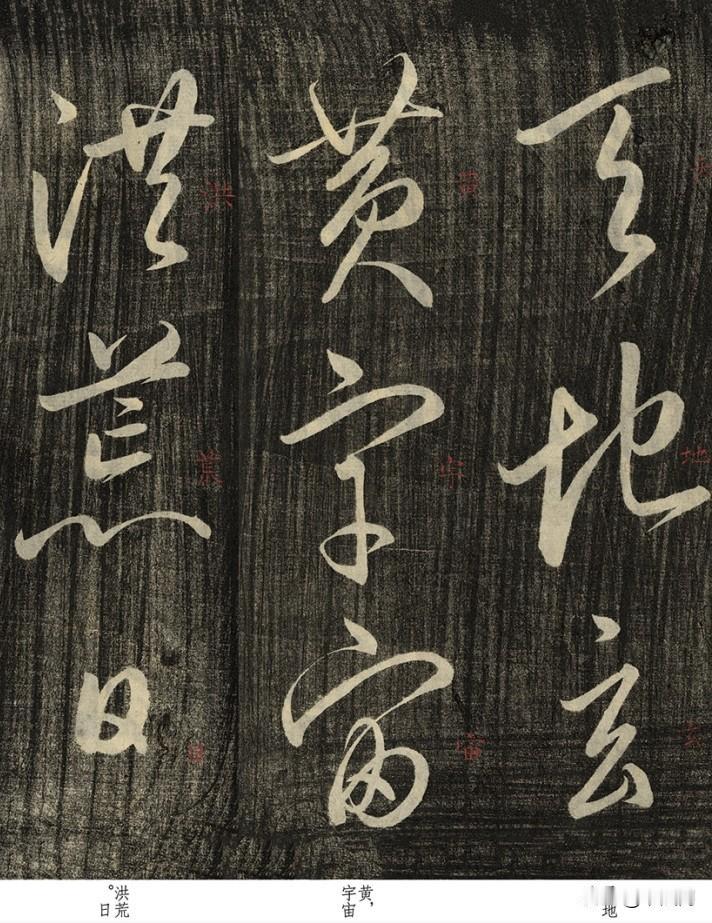 天地玄
黄宇宙
洪荒日
地
黄,
宇宙
洪荒
。日
地
玄
黄
宇
宙
洪
荒
日